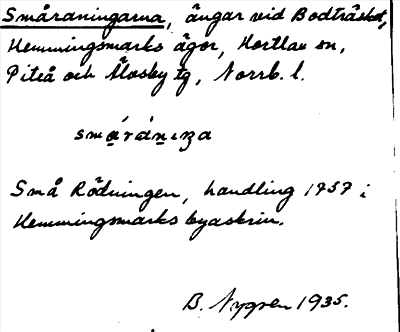 Småraningarna, ängar vid Bodträsket,
Hemmingsmarks ägor, Hortlax sn,
Piteå och Älvsby tg, Norrb. l.
smårånıŋa
Små Rödningen, handling 1757 i
Hemmingsmarks byaskrin.
B. Nygren 1935.